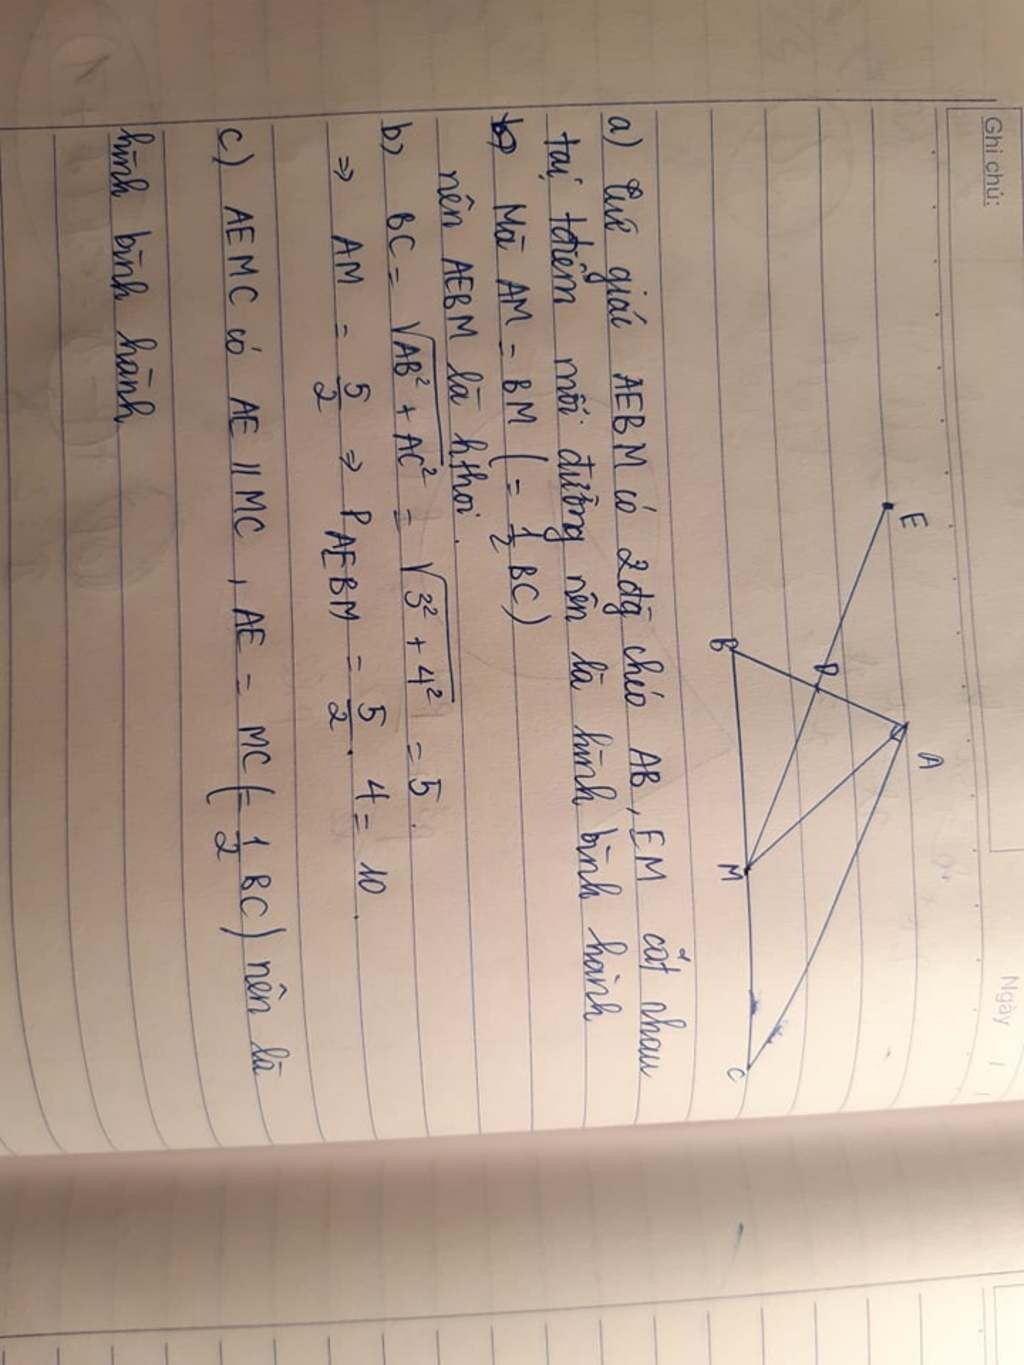 Ghi chú:
Ngày / /
E
A
D
B
M
C
a) Tứ giác AEBM có 2 đg chéo AB, EM cắt nhau
tại tđiểm mỗi đường nên là hình bình hành
Mà AM = BM (= 1/2 BC)
nên AEBM là h.thoi.
b) BC = √(AB² + AC²) = √(3² + 4²) = 5.
⇒ AM = 5/2 ⇒ P_AEBM = 5/2 . 4 = 10.
c) AEMC có AE // MC, AE = MC (= 1/2 BC) nên là
hình bình hành